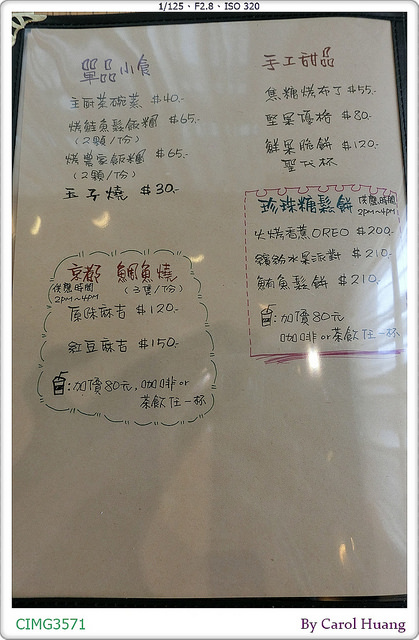 1/125 · F2.8 · ISO 320
單品小食
主廚茶碗蒸 $40.-
烤鮭魚鬆飯糰 $65.-
(2顆/份)
烤農家飯糰 $65.-
(2顆/份)
玉子燒 $30.-
手工甜品
焦糖烤布丁 $55.-
堅果優格 $80.-
鮮果脆餅 $120.-
聖代杯
珍珠糖鬆餅 供應時間
2pm~4pm
火烤香蕉OREO $200.-
繽紛水果派對 $210.-
鮪魚鬆餅 $210.-
:加價80元
咖啡or茶飲任一杯
京都 鯛魚燒
供應時間 (3隻/份)
2pm~4pm
原味麻吉 $120.-
紅豆麻吉 $150.-
:加價80元,咖啡or
茶飲任一杯
CIMG3571
By Carol Huang